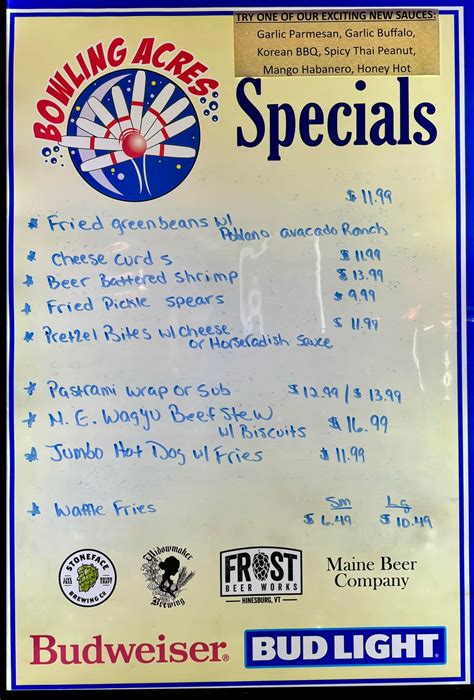 TRY ONE OF OUR EXCITING NEW SAUCES:
Garlic Parmesan, Garlic Buffalo,
Korean BBQ, Spicy Thai Peanut,
Mango Habanero, Honey Hot
BOWLING ACRES
Specials
$11.99
* Fried greenbeans w/
Poblano avacado Ranch
* Cheese curds $11.99
* Beer Battered Shrimp $13.99
* Fried Pickle spears $9.99
* Pretzel Bites w/cheese $11.99
or Horseradish Sauce
* Pastrami wrap or Sub $12.99 / $13.99
* N.E. Wagyu Beef Stew
w/ Biscuits $16.99
* Jumbo Hot Dog w/ Fries $11.99
Sm Lg
* Waffle Fries $6.49 $10.49
STONEFACE
BREWING CO
Widowmaker
Brewing
FROST
BEER WORKS
HINESBURG, VT
Maine Beer
Company
Budweiser®
BUD LIGHT